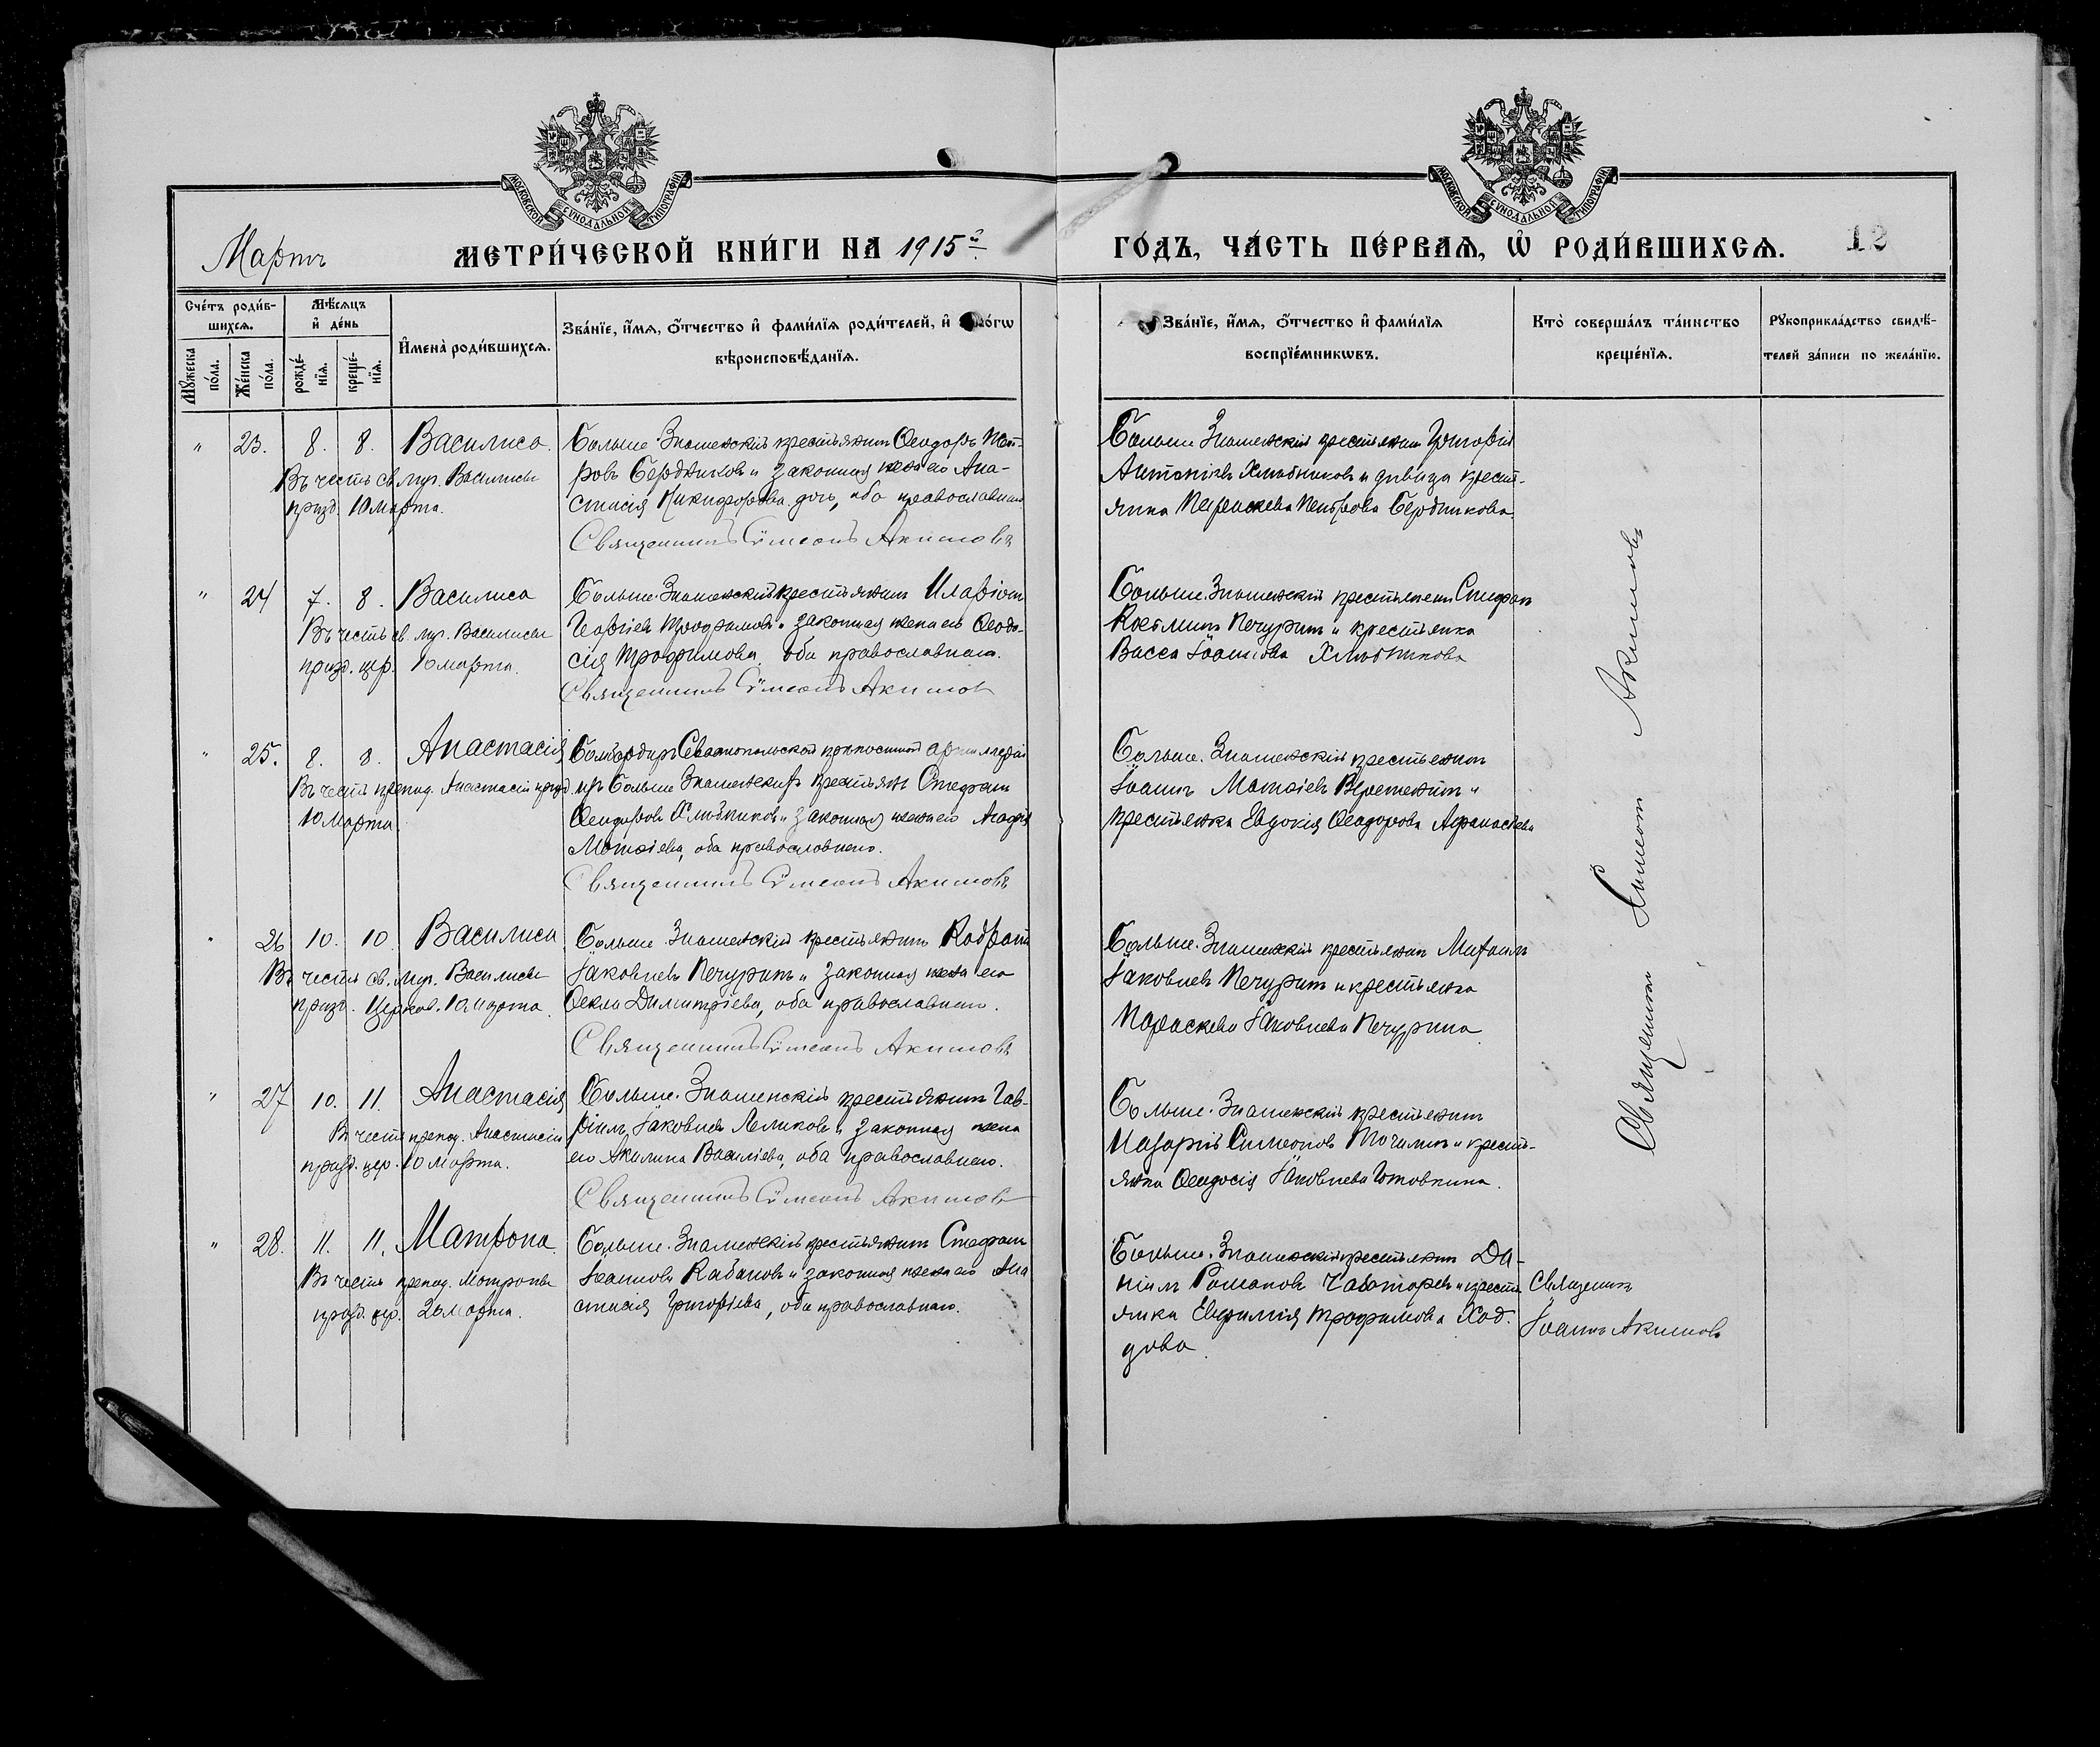 МОСКОВСКОЙ СѴНОДАЛЬНОЙ ТИПОГРАФІИ
МОСКОВСКОЙ СѴНОДАЛЬНОЙ ТИПОГРАФІИ
Мартъ
МЕТРИ́ЧЕСКОЙ КНИ́ГИ НА 1915й
ГО́ДЪ, ЧА́СТЬ ПЕ́РВАѦ, Ѡ҆ РОДИ́ВШИХСѦ.
12
Сче́тъ роди́в-
шихсѧ.
Мꙋ́жеска по́ла.
Же́нска по́ла.
Мѣ́сѧцъ
и҆ де́нь
рожде́-
нїѧ.
креще́-
нїѧ.
И҆мена̀ роди́вшихсѧ.
Зва́нїе, и҆́мѧ, ѻ҆́тчество и҆ фами́лїѧ роди́телей, и҆
вѣроисповѣ́данїѧ.
Зва́нїе, и҆́мѧ, ѻ҆́тчество и҆ фами́лїѧ
воспрїе́мникѡвъ.
Кто̀ соверша́лъ та́инство
креще́нїѧ.
Рꙋкоприкла́дство свидѣ́-
телей за́писи по жела́нїю.
" 23. 8. 8. Василиса.
Въ честь св. муч. Василисы
празд. 10 марта.
Больше-Знаменскій крестьянинъ Ѳеодоръ Пет-
ровъ Бердниковъ и законная жена его Ана-
стасія Никифорова, оба православнаго
Священникъ Симеонъ Акимовъ
Больше-Знаменскій крестьянинъ Григорій
Антоніевъ Хлѣбниковъ и дѣвица крестъ-
янка Параскева Петрова Бердникова.
" 24 7. 8. Василиса
Въ честь св. муч. Василисы
празд. цер. 10 марта.
Больше-Знаменскій крестьянинъ Иларіонъ
Георгіевъ Трофимовъ и законная жена его Ѳеодо-
сія Трофимова, оба православнаго.
Священникъ Симеонъ Акимовъ
Больше-Знаменскій крестьянинъ Стефанъ
Козьминъ Печуринъ и крестьянка
Васса Іоаннова Хлѣбникова
" 25. 8. 8. Анастасія
Въ честь препод. Анастасіи празд.
10 марта.
Бомбардиръ Севастопольской крѣпостной артиллеріи
изъ Больше-Знаменскихъ крестьянъ Стефанъ
Ѳеодоровъ Хлѣбниковъ и законная жена его Агафія
Матѳіева, оба православнаго.
Священникъ Симеонъ Акимовъ
Больше-Знаменскій крестьянинъ
Іоаннъ Матѳіевъ Веретенинъ и
крестьянка Евдокія Ѳеодорова Афанасьева
" 26 10. 10. Василиса
Въ честь св. муч. Василисы
празд. церков. 10 марта.
Больше-Знаменскій крестьянинъ Кодратъ
Іаковлевъ Печуринъ и законная жена его
Ѳекла Димитріева, оба православнаго.
Священникъ Симеонъ Акимовъ
Больше-Знаменскій крестьянинъ Михаилъ
Іаковлевъ Печуринъ и крестьянка
Параскева Іаковлева Печурина
" 27 10. 11. Анастасія
Въ честь препод. Анастасіи
празд. цер. 10 марта.
Больше-Знаменскій крестьянинъ Гав-
ріилъ Іаковлевъ Леликовъ и законная жена
его Акилина Василіева, оба православнаго.
Священникъ Симеонъ Акимовъ
Больше-Знаменскій крестьянинъ
Назарій Симеоновъ Точилинъ и крестъ-
янка Ѳеодосія Іаковлева Готовкина.
" 28. 11. 11. Матрона
Въ честь препод. Матроны
празд. цер. 20 марта.
Больше-Знаменскій крестьянинъ Стефанъ
Іоанновъ Кабановъ и законная жена его Ана
стасія Григоріева, оба православнаго.
Больше-Знаменскій крестьянинъ Да-
ніилъ Романовъ Чеботаревъ и крестъ
янка Евфимія Трофимова Ход-
дова.
Священникъ Симеонъ Акимовъ
Священникъ
Іоаннъ Акимовъ